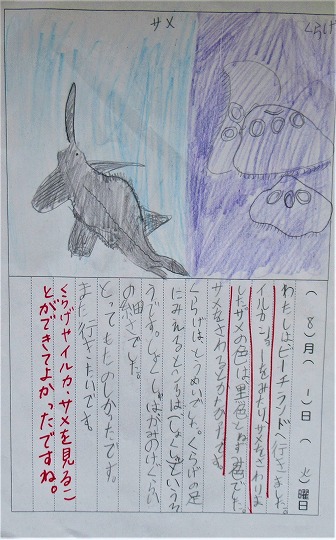 サメ
くらげ
(8)月(1)日(火)曜日
わたしは、ビーチランドへ行きました。
イルカショーをみたり、サメをさわりま
したサメの色は、黒色とねずみ色でした。
サメをさわるとざらざらでした。
くらげはとうめいでした。くらげの足
にみえるところは「しょくしゅ」という
そうです。しょくしゅはかみのけぐらい
の細さでした。
とってもたのしかったです。
また行きたいです。
くらげやイルカ、サメを見るこ
とができてよかったですね。